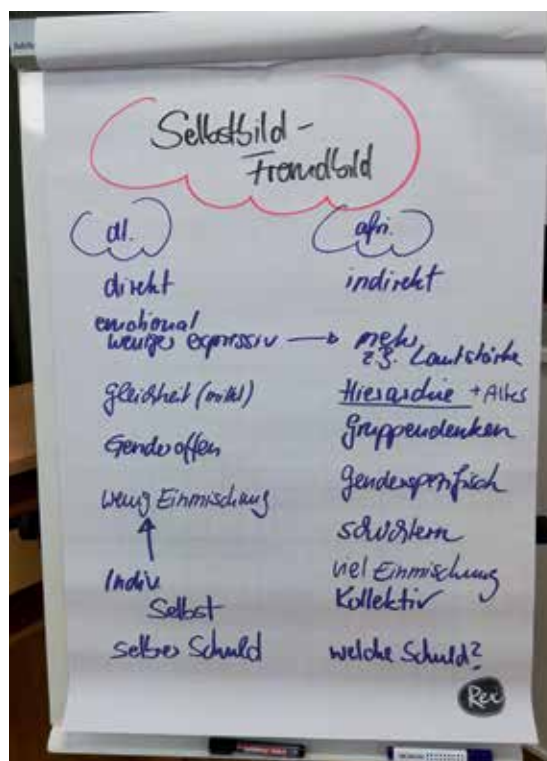 Selbstbild -
Fremdbild
dt.
direkt
emotional
weniger expressiv →
Gleichheit (mittel)
Genderoffen
wenig Einmischung
↑
Indiv.
Selbst
selber Schuld
afri.
indirekt
mehr
z.B. Lautstärke
Hierarchie + Alter
Gruppendenken
genderspezifisch
schüchtern
viel Einmischung
Kollektiv
welche Schuld?
Rex